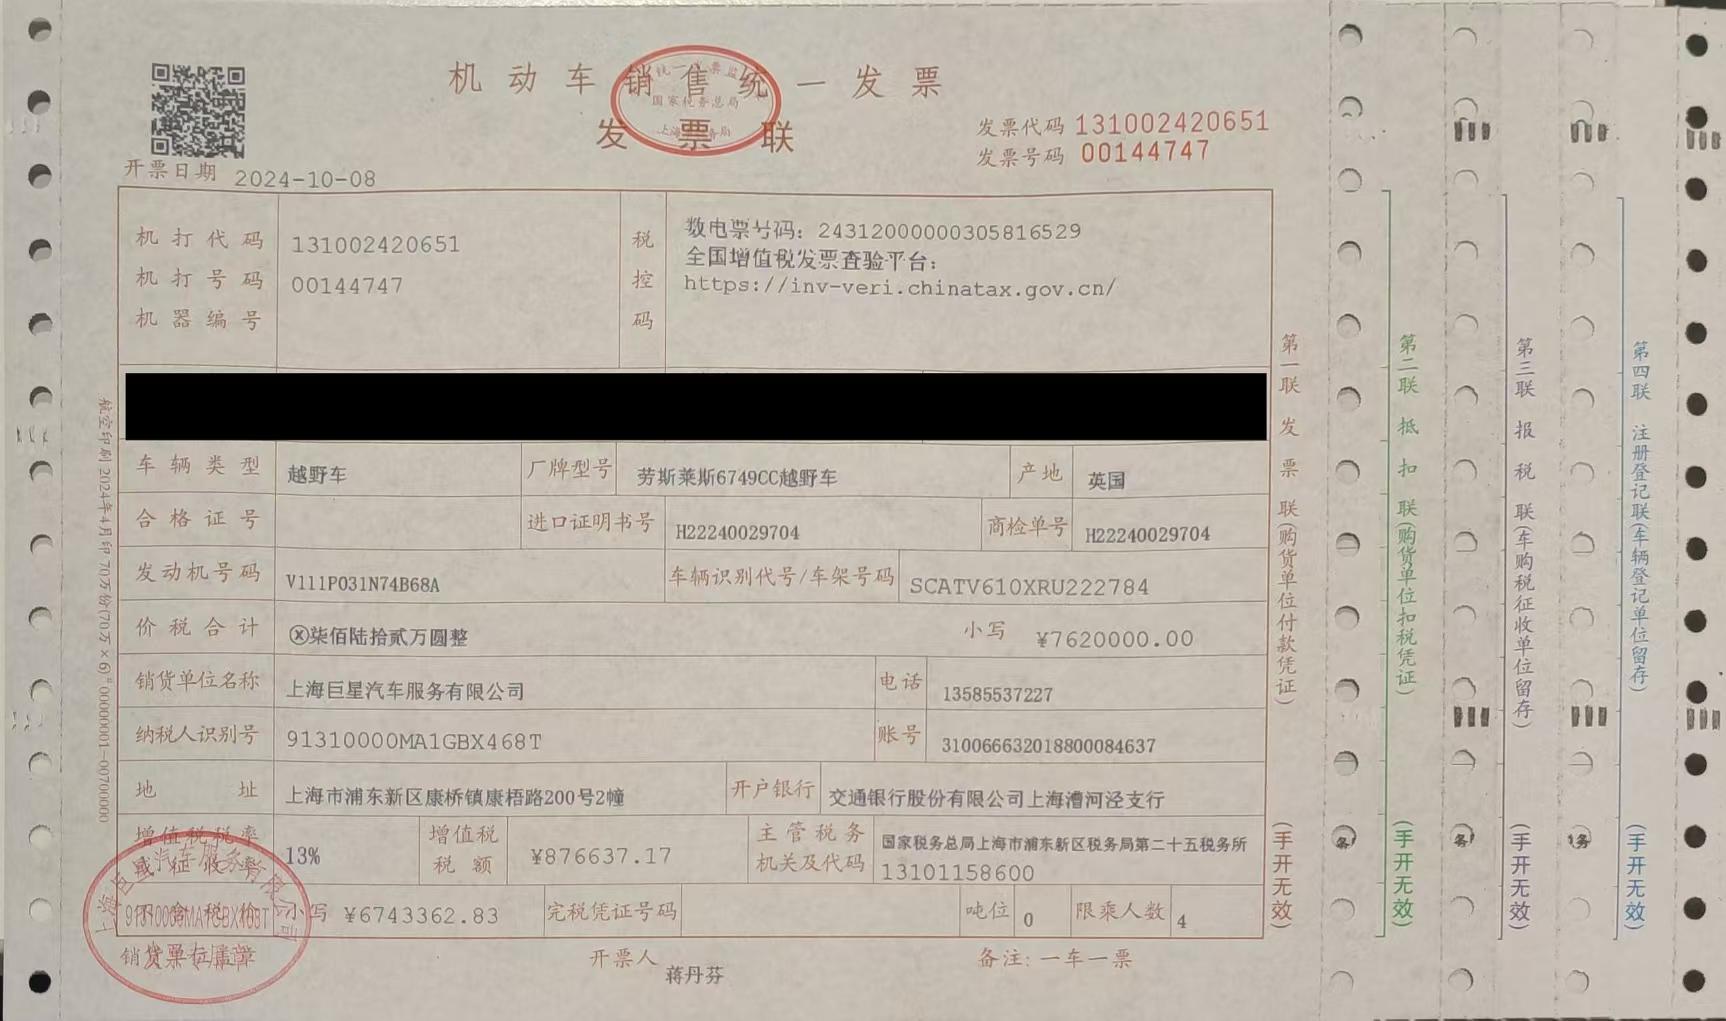 机动车销售统一发票
发票联
统一发票监
国家税务总局
上海 务局
发票代码 131002420651
发票号码 00144747
开票日期 2024-10-08
机打代码 131002420651
机打号码 00144747
机器编号
税控码
数电票号码：24312000000305816529
全国增值税发票查验平台：
https://inv-veri.chinatax.gov.cn/
车辆类型 越野车 厂牌型号 劳斯莱斯6749CC越野车 产地 英国
合格证号 进口证明书号 H22240029704 商检单号 H22240029704
发动机号码 V111P031N74B68A 车辆识别代号/车架号码 SCATV610XRU222784
价税合计 ⓧ柒佰陆拾贰万圆整 小写 ¥7620000.00
销货单位名称 上海巨星汽车服务有限公司 电话 13585537227
纳税人识别号 91310000MA1GBX468T 账号 310066632018800084637
地址 上海市浦东新区康桥镇康梧路200号2幢 开户银行 交通银行股份有限公司上海漕河泾支行
增值税税率或征收率 13% 增值税税额 ¥876637.17 主管税务机关及代码 国家税务总局上海市浦东新区税务局第二十五税务所
13101158600
不含税价 小写 ¥6743362.83 完税凭证号码 吨位 0 限乘人数 4
销货单位盖章 开票人 蒋丹芬 备注：一车一票
上海巨星汽车服务有限公司
91310000MA1GBX468T
发票专用章
航空印刷 2024年4月印 70万份(70万×6)* 00000001-00700000
第一联 发票联(购货单位付款凭证)
(手开无效)
第二联 抵扣联(购货单位扣税凭证)
(手开无效)
第三联 报税联(车购税征收单位留存)
(手开无效)
第四联 注册登记联(车辆登记单位留存)
(手开无效)